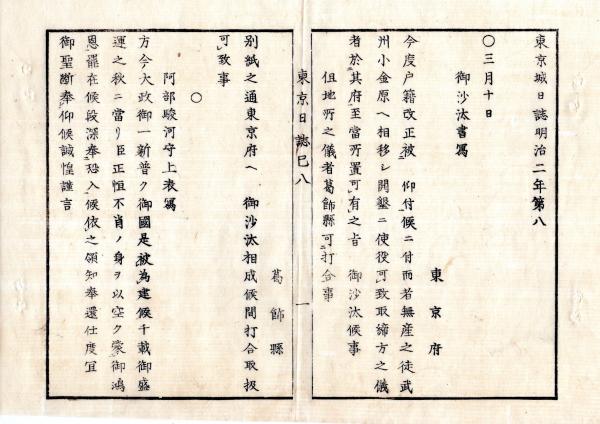 東京城日誌明治二年第八
〇三月十日
御沙汰書寫
東京府
今度戸籍改正被 仰付候ニ付而若無產之徒武
州小金原ヘ相移シ開墾ニ使役可致取締方之儀
者於其府至當所置可有之旨 御沙汰候事
但地所之儀者葛飾縣可打合事
東京日誌巳八
一
葛飾縣
別紙之通東京府ヘ 御沙汰相成候間打合取扱
可致事
〇
阿部駿河守上表寫
方今大政御一新普ク御國是被為建候千載御盛
運之秋ニ當リ臣正恒不肖ノ身ヲ以空ク蒙御鴻
恩罷在候段深奉恐入候依之領知奉還仕度宜
御聖断奉仰候誠惶謹言